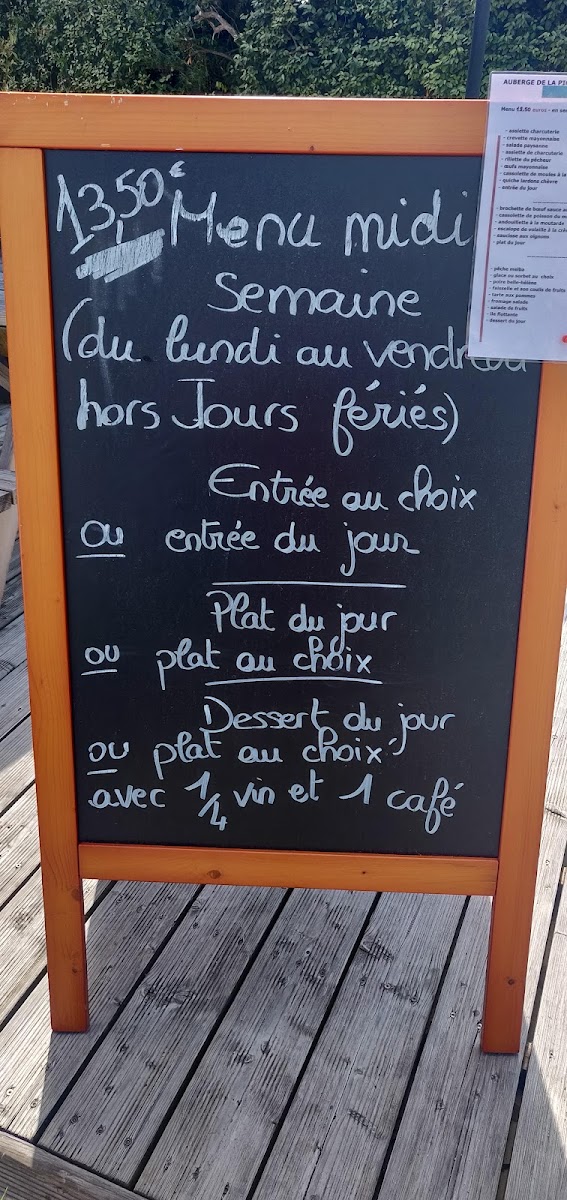 13,50€ Menu midi
Semaine
(du lundi au vendredi
hors Jours fériés)
Entrée au choix
ou entrée du jour
Plat du jour
ou plat au choix
Dessert du jour
ou plat au choix
avec 1/4 vin et 1 café
AUBERGE DE LA
Menu 13.50 euros - en
- assiette charcuterie
- crevette mayonnaise
- salade paysanne
- assiette de charcuterie
- rillette du pêcheur
- œufs mayonnaise
- cassolette de moules à la
- quiche lardons chèvre
- entrée du jour
- brochette de bœuf sauce
- cassolette de poisson du
- andouillette à la moutarde
- escalope de volaille à la
- saucisse aux oignons
- plat du jour
- pêche melba
- glace ou sorbet au choix
- poire belle-hélène
- faisselle et son coulis de fruits
- tarte aux pommes
- fromage salade
- salade de fruits
- ile flottante
- dessert du jour